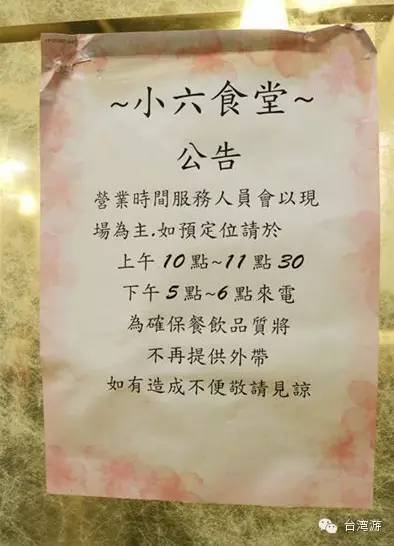 ~小六食堂~
公告
營業時間服務人員會以現
場為主.如預定位請於
上午10點~11點30
下午5點~6點來電
為確保餐飲品質將
不再提供外帶
如有造成不便敬請見諒
台湾游